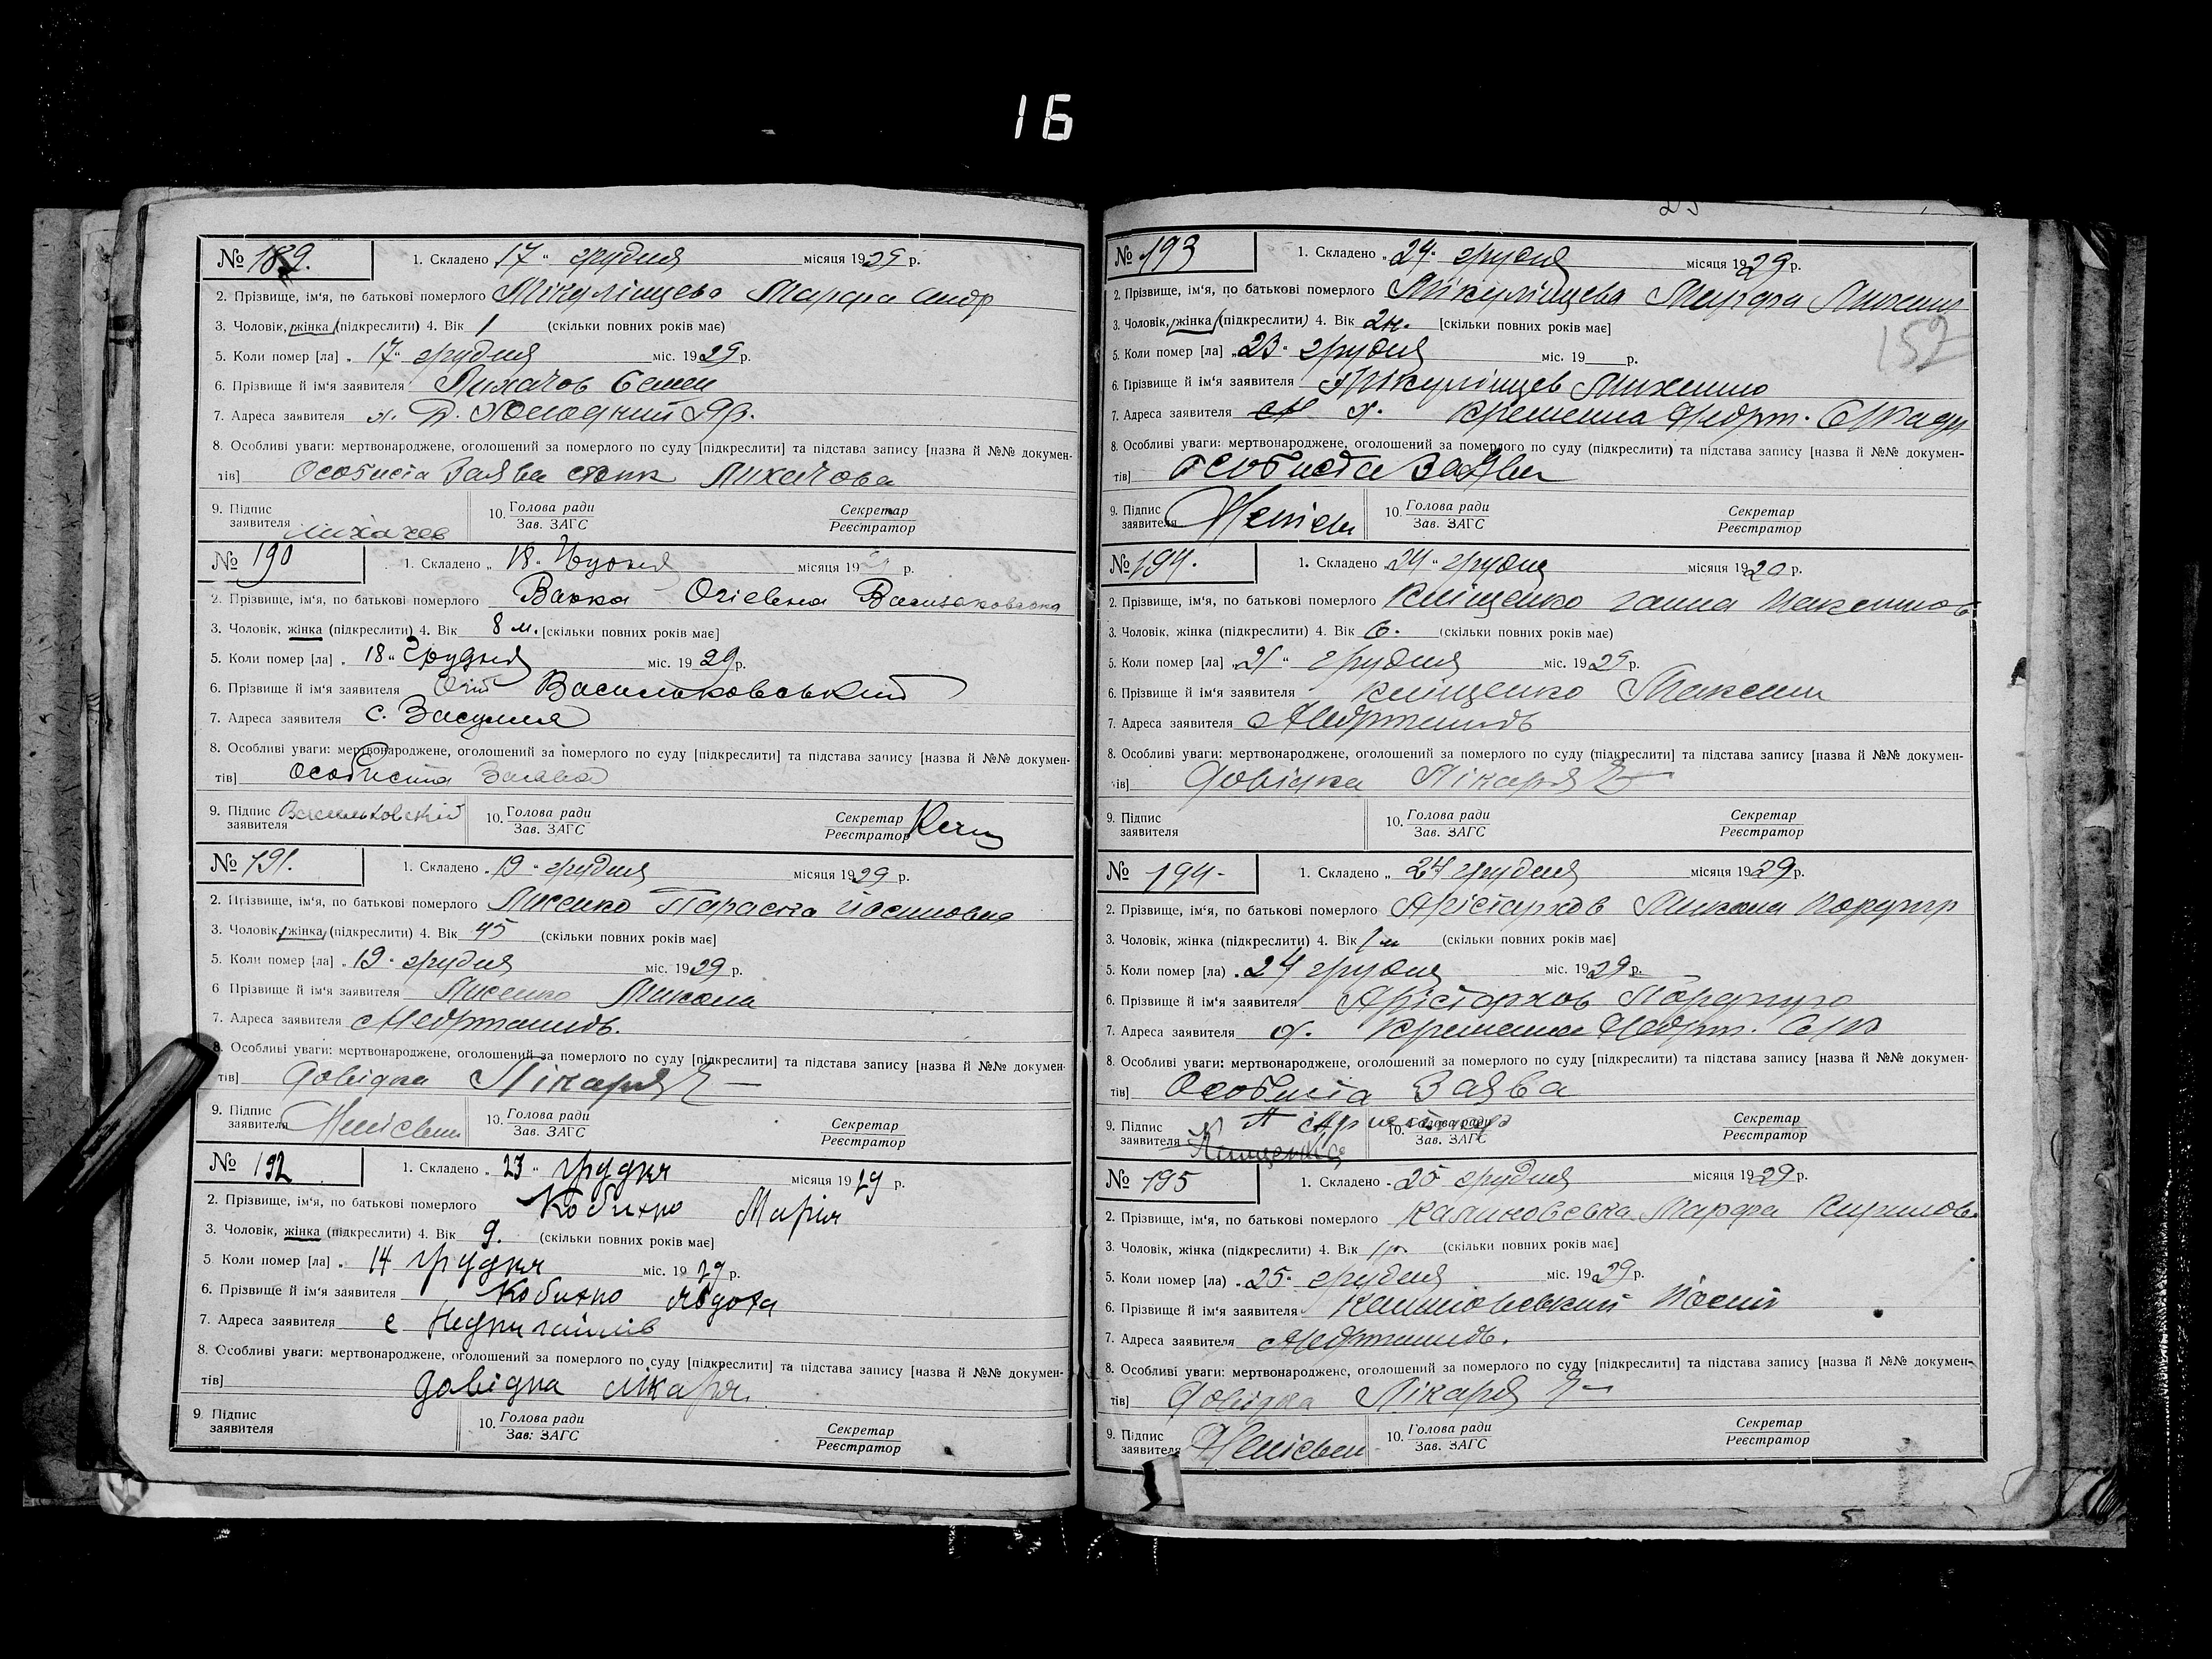 16
№ 189.
1. Складено 17 " грудня місяця 1929 р.
2. Прізвище, ім'я, по батькові померлого Мікулінцева Марфа Андр
3. Чоловік, жінка (підкреслити) 4. Вік 1 (скільки повних років має)
5. Коли помер [ла] " 17 " грудня міс. 1929 р.
6. Прізвище й ім'я заявителя Лихачов Семен
7. Адреса заявителя х. Холодний Яр.
8. Особливі уваги: мертвонароджене, оголошений за померлого по суду [підкреслити] та підстава запису [назва й №№ докумен-
тів] Особиста Заява Лихачова
9. Підпис заявителя Лихачев 10. Голова ради Зав. ЗАГС Секретар Реєстратор
№ 190
1. Складено " 18 " Грудня місяця 19 р.
2. Прізвище, ім'я, по батькові померлого
3. Чоловік, жінка (підкреслити) 4. Вік 8 м. [скільки повних років має]
5. Коли помер [ла] " 18 " Грудня міс. 1929 р.
6. Прізвище й ім'я заявителя Васильковський
7. Адреса заявителя с. Засулля
8. Особливі уваги: мертвонароджене, оголошений за померлого по суду [підкреслити] та підстава запису [назва й №№ докумен-
тів] Особиста Заява
9. Підпис заявителя Васильковский 10. Голова ради Зав. ЗАГС Секретар Реєстратор
№ 191.
1. Складено " 19 " грудня місяця 1929 р.
2. Прізвище, ім'я, по батькові померлого Лисенко Параска Йосиповна
3. Чоловік, жінка (підкреслити) 4. Вік 45 (скільки повних років має]
5. Коли помер [ла] " 19 " грудня міс. 1929 р.
6 Прізвище й ім'я заявителя Лисенко Микола
7. Адреса заявителя с Недригайлів.
8. Особливі уваги: мертвонароджене, оголошений за померлого по суду [підкреслити] та підстава запису [назва й №№ докумен-
тів] Довідка Лікаря
9. Підпис заявителя 10. Голова ради Зав. ЗАГС Секретар Реєстратор
№ 192
1. Складено " 23 " грудня місяця 1929 р.
2. Прізвище, ім'я, по батькові померлого Марія
3. Чоловік, жінка (підкреслити) 4. Вік 9. (скільки повних років має]
5 Коли помер [ла] " 14 грудня міс. 1929 р.
6. Прізвище й ім'я заявителя
7. Адреса заявителя с Недригайлів
8. Особливі уваги: мертвонароджене, оголошений за померлого по суду [підкреслити] та підстава запису [назва й №№ докумен-
тів] Довідка лікаря.
9. Підпис заявителя 10. Голова ради Зав. ЗАГС Секретар Реєстратор
№ 193
1. Складено " 24 " грудня місяця 1929 р.
2. Прізвище, ім'я, по батькові померлого Мікулінцева Марфа
3. Чоловік, жінка (підкреслити) 4. Вік [скільки повних років має]
152
5. Коли помер [ла] " 23 " грудня міс. 19 р.
6. Прізвище й ім'я заявителя Мікулінцев
7. Адреса заявителя х.
8. Особливі уваги: мертвонароджене, оголошений за померлого по суду (підкреслити) та підстава запису [назва й №№ докумен-
тів] Особиста Заява
9. Підпис заявителя 10. Голова ради Зав. ЗАГС Секретар Реєстратор
№ 194.
1. Складено " 24 " грудня місяця 1929 р.
2. Прізвище, ім'я, по батькові померлого Кліщенко Ганна Максимов
3. Чоловік, жінка (підкреслити) 4. Вік 6. (скільки повних років має)
5. Коли помер [ла] " 21 " грудня міс. 1929 р.
6. Прізвище й ім'я заявителя Кліщенко Максим
7. Адреса заявителя с Недригайлів
8. Особливі уваги: мертвонароджене, оголошений за померлого по суду (підкреслити] та підстава запису [назва й №№ докумен-
тів] Довідка Лікаря
9. Підпис заявителя 10. Голова ради Зав. ЗАГС Секретар Реєстратор
№ 194-
1. Складено " 24 грудня місяця 1929 р.
2. Прізвище, ім'я, по батькові померлого Арістархов Микола
3. Чоловік, жінка (підкреслити) 4. Вік 1 м (скільки повних років має]
5. Коли помер [ла) " 24 грудня міс. 1929 р.
6. Прізвище й ім'я заявителя Арістархов
7. Адреса заявителя х.
8. Особливі уваги: мертвонароджене, оголошений за померлого по суду [підкреслити) та підстава запису [назва й №№ докумен-
тів] Особиста Заява
9. Підпис заявителя 10. Голова ради Зав. ЗАГС Секретар Реєстратор
№ 195
1. Складено " 25 грудня місяця 1929 р.
2. Прізвище, ім'я, по батькові померлого Калиновська Марфа Кирилов.
3. Чоловік, жінка (підкреслити) 4. Вік 1 р. (скільки повних років має]
5. Коли помер [ла) " 25 " грудня міс. 1929 р.
6. Прізвище й ім'я заявителя Калиновський Йосип
7. Адреса заявителя с Недригайлів.
8. Особливі уваги: мертвонароджене, оголошений за померлого по суду [підкреслити] та підстава запису [назва й №№ докумен-
тів] Довідка Лікаря
9. Підпис заявителя 10. Голова ради Зав. ЗАГС Секретар Реєстратор
5